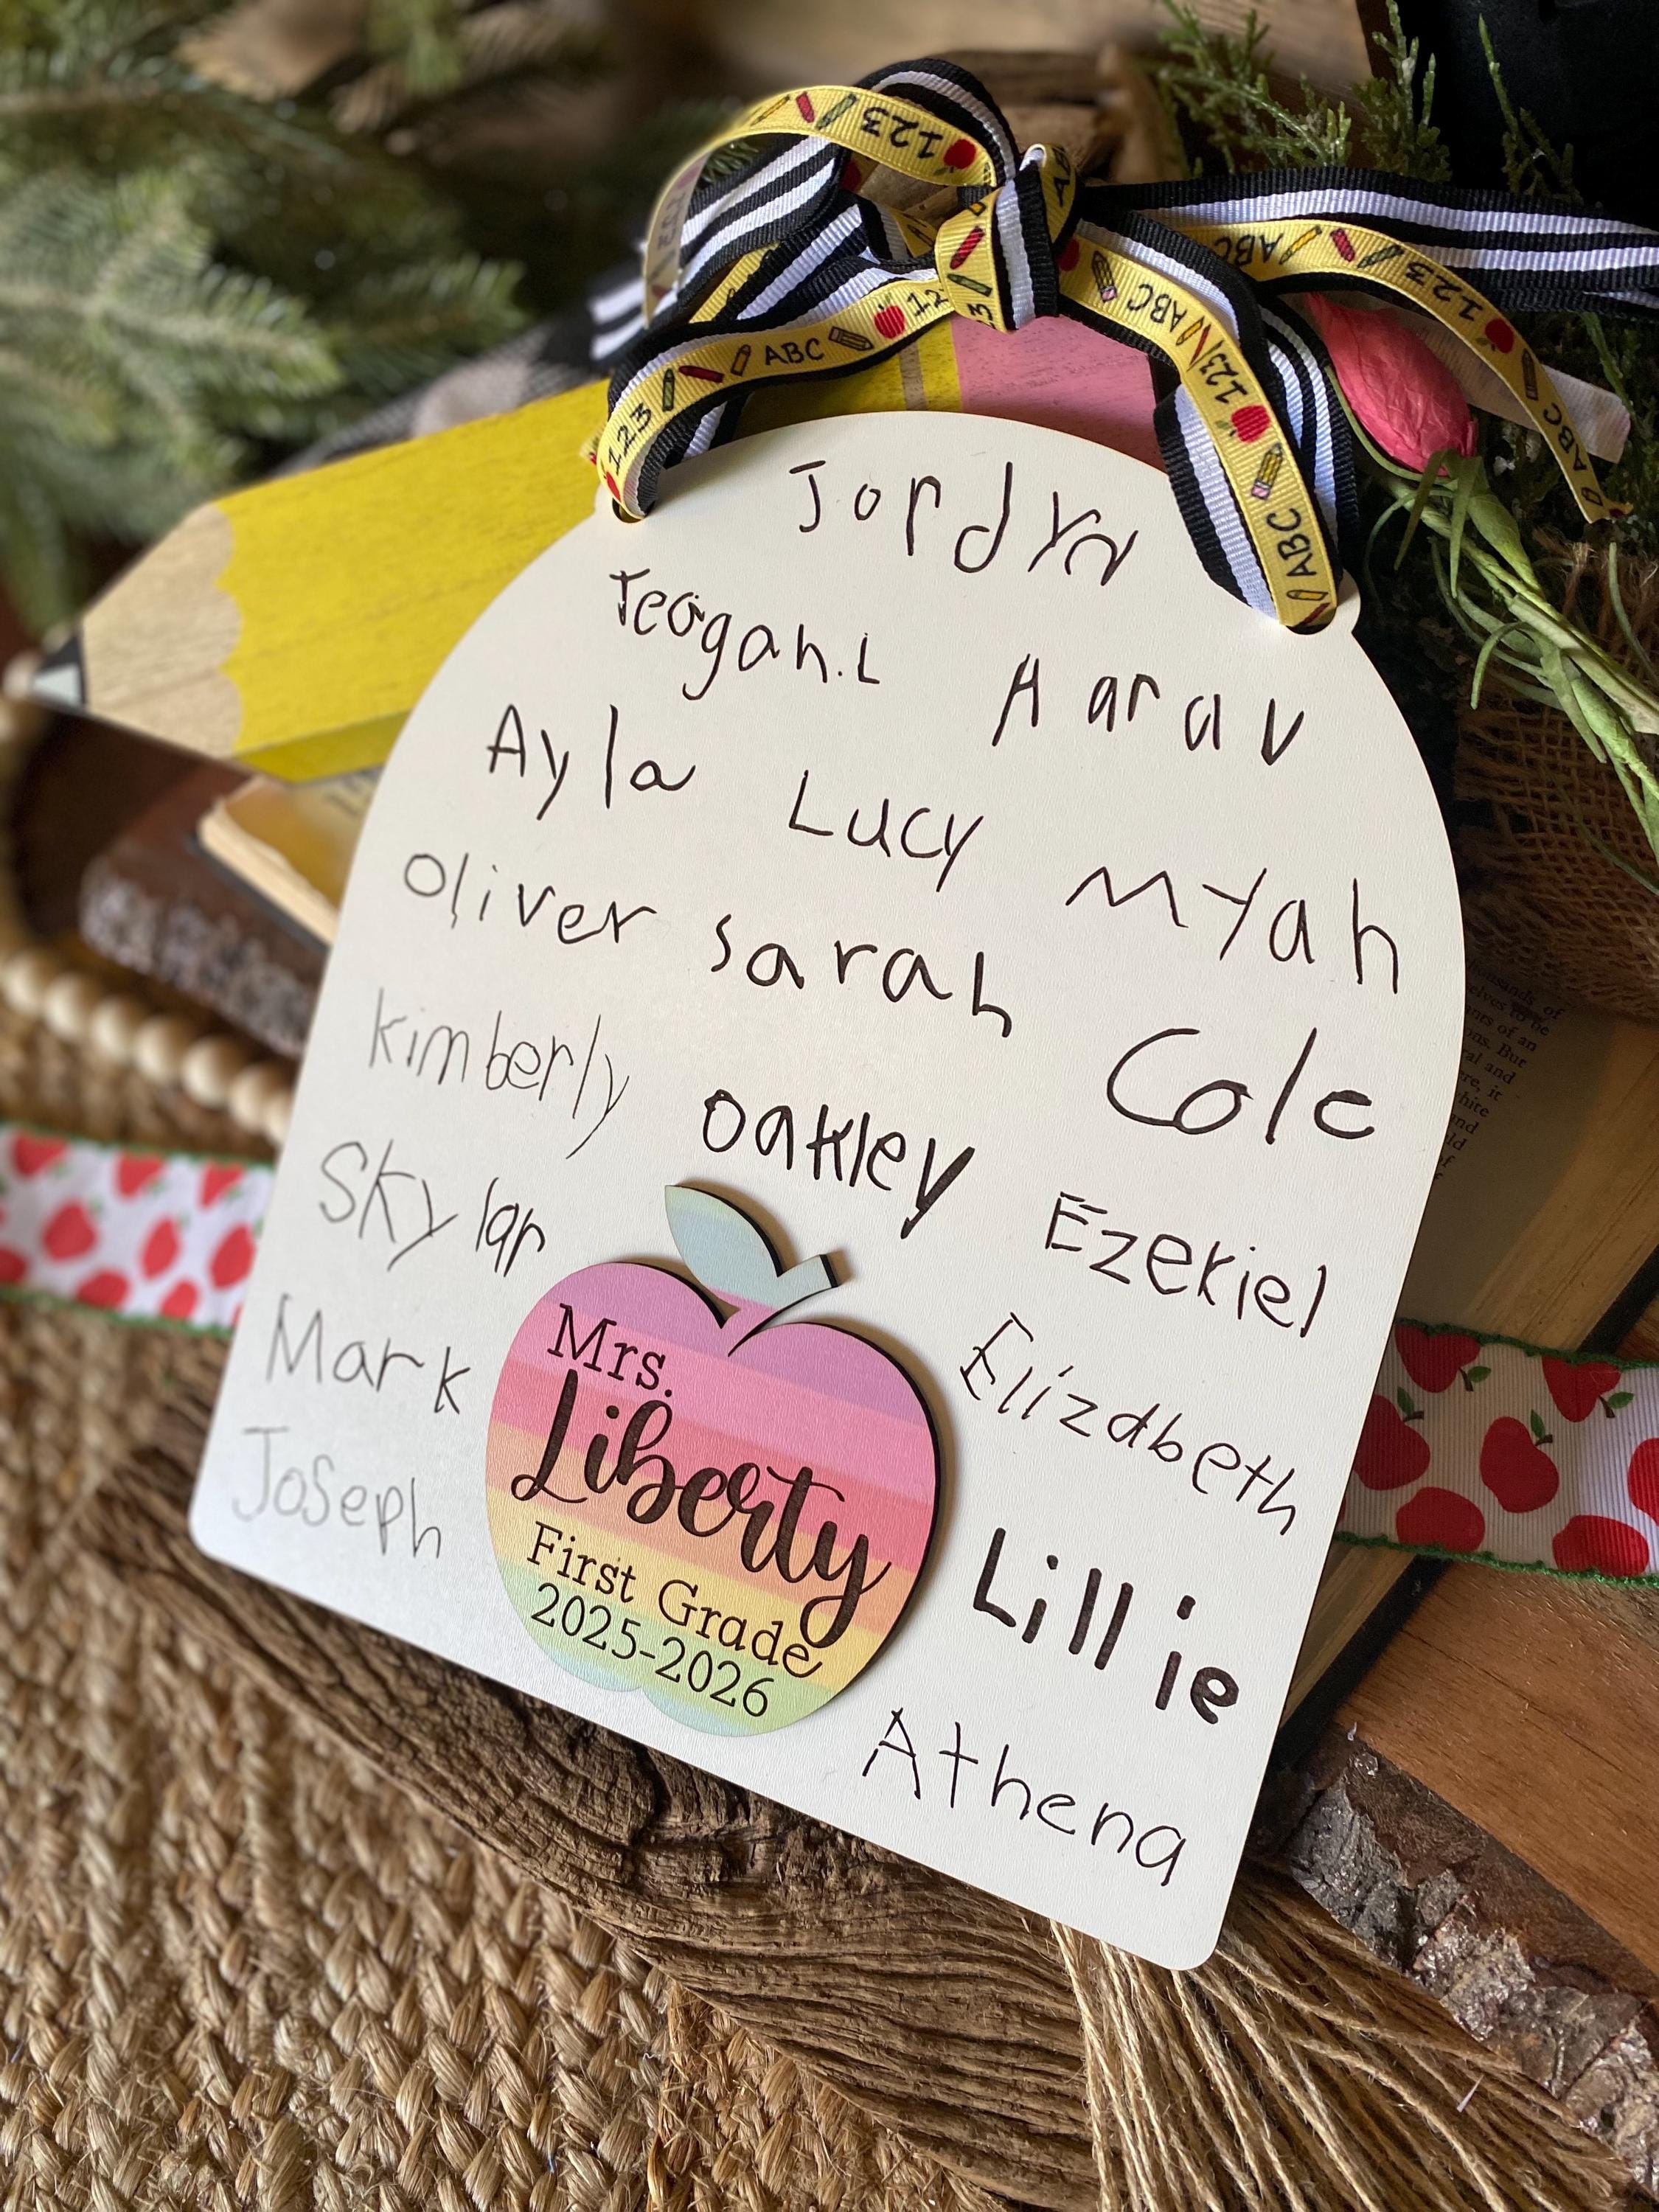 123 ABC 123
ABC 123 ABC
123 ABC 123 ABC
Jordyn
Teagan.L Aarav
Ayla Lucy Myah
Oliver sarah
Kimberly Oakley Cole
Skylar Ezekiel
Mark Elizabeth
Joseph Lillie
Athena
Mrs.
Liberty
First Grade
2025-2026